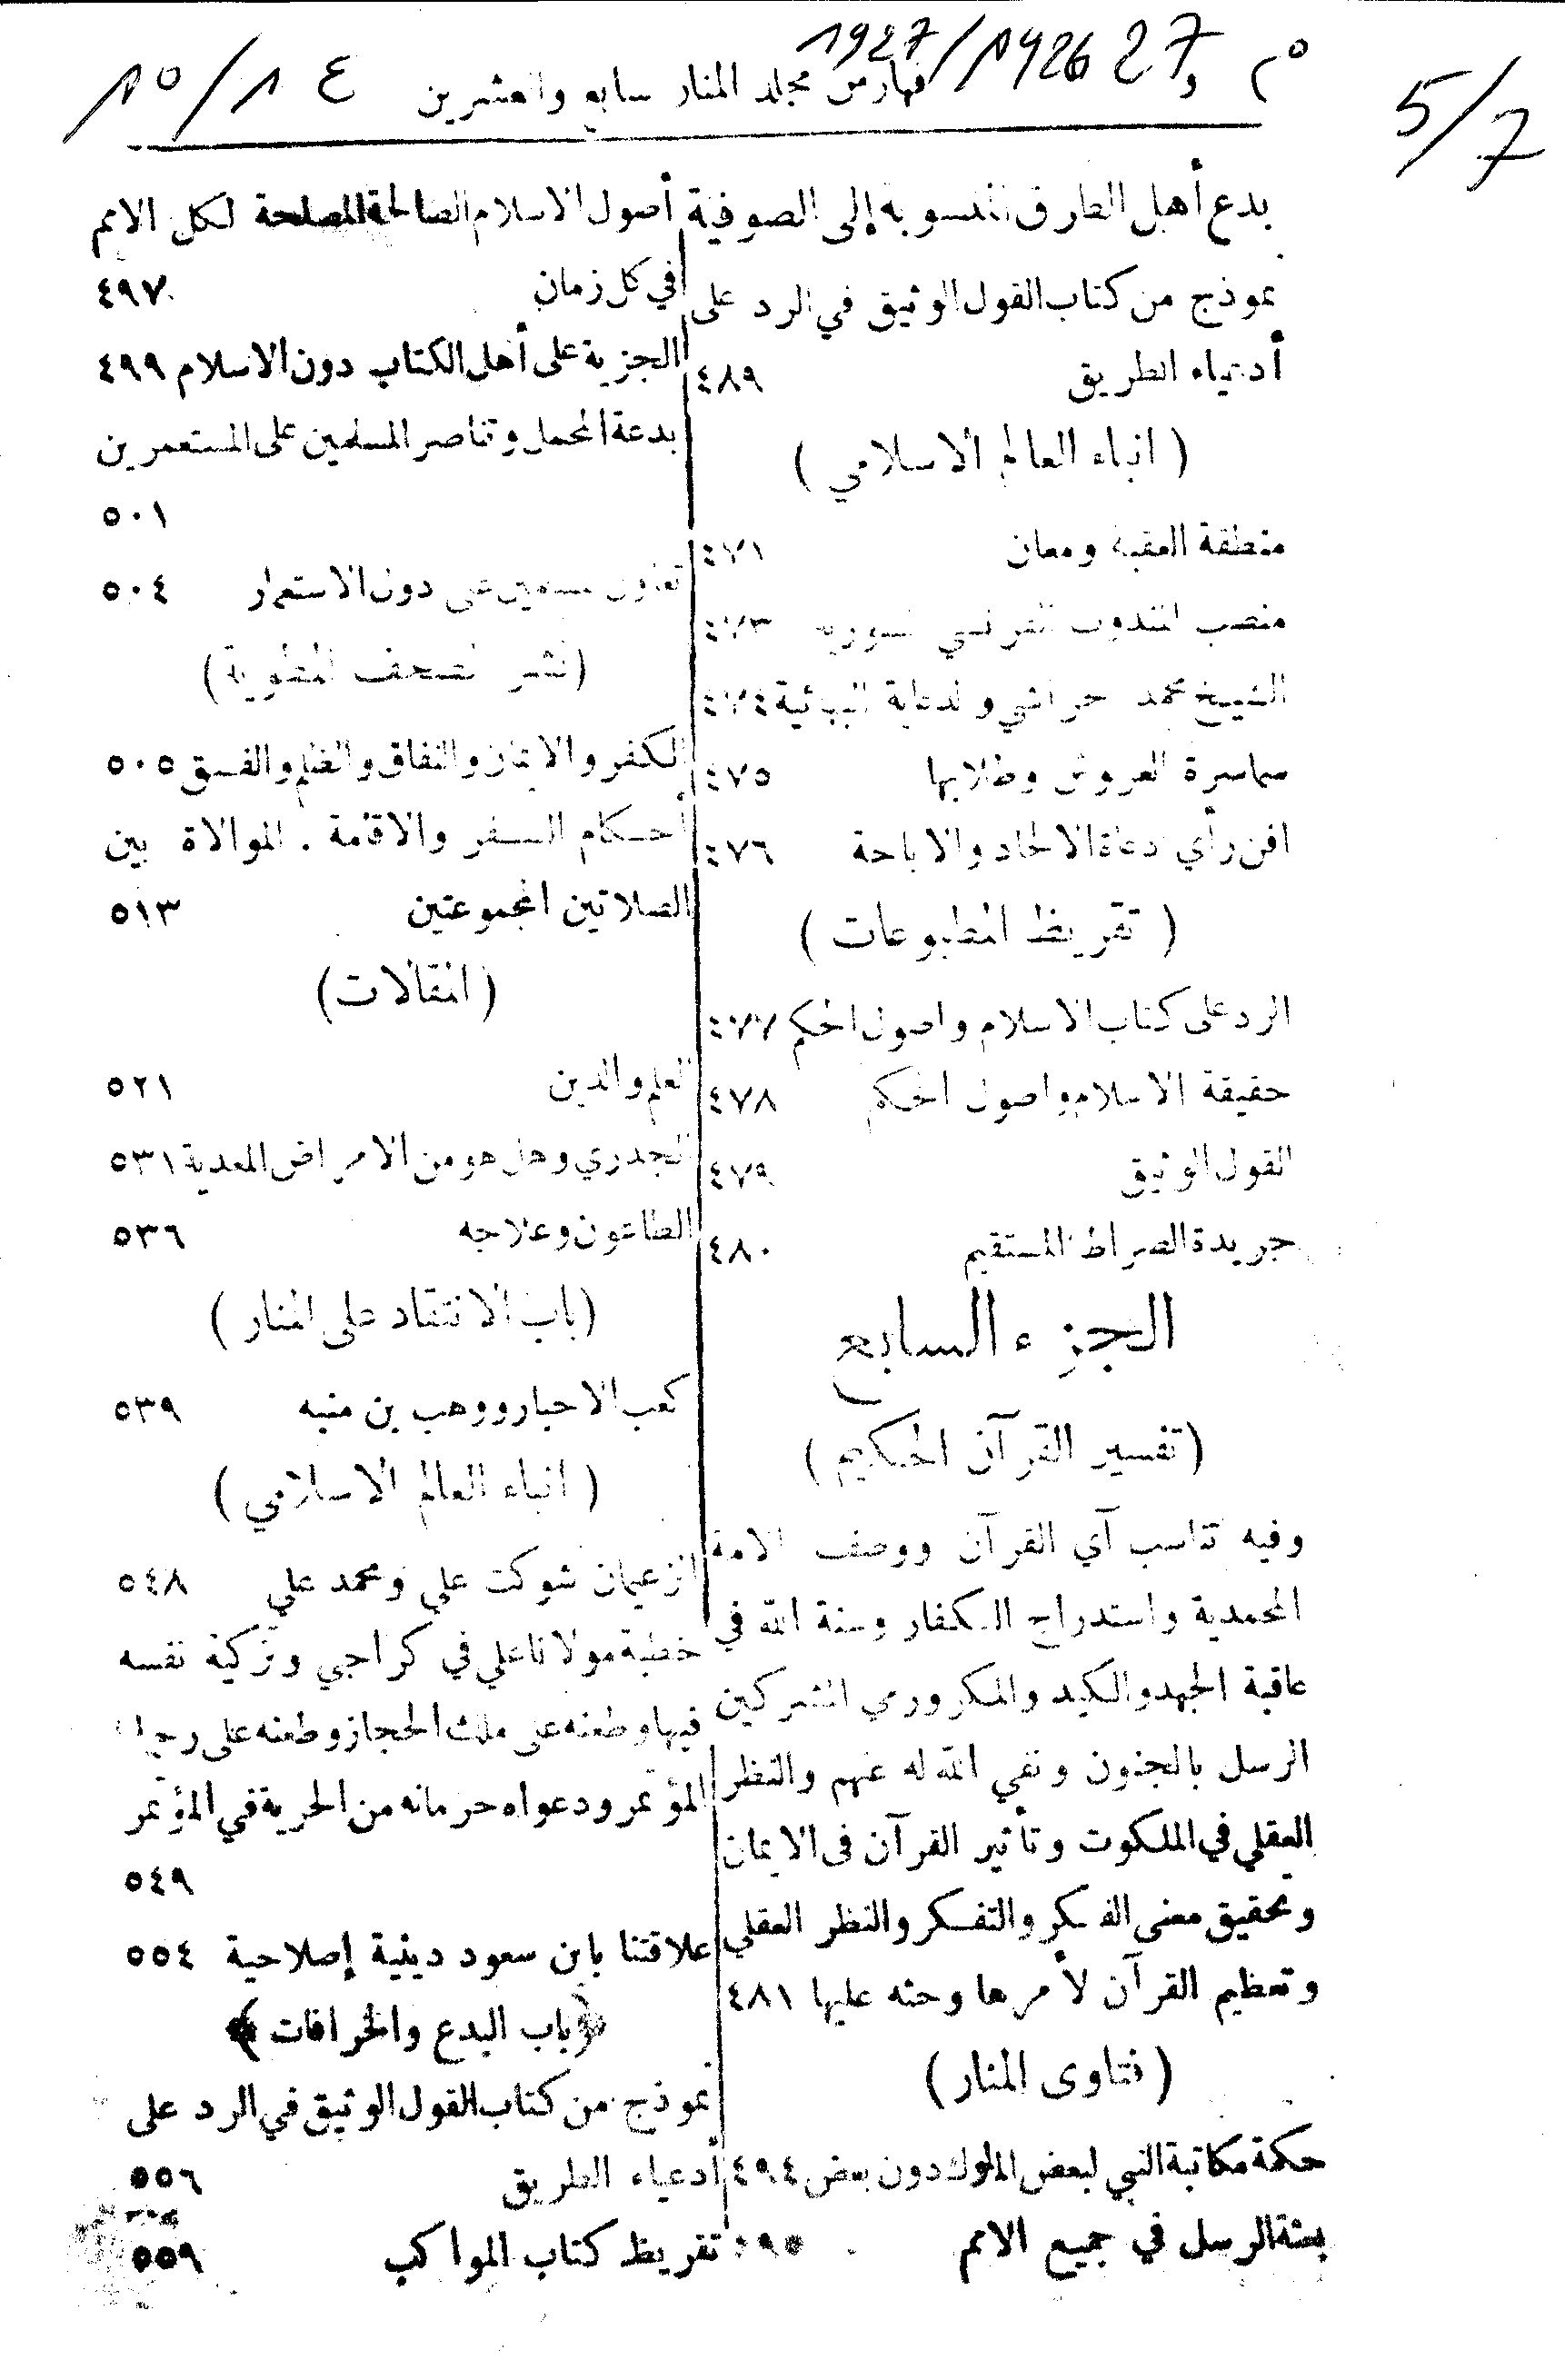 م ٥ و 27 1926/1927
5/7
١٤/١٥
فهارس مجلد المنار سابع والعشرين
بدع أهل الطرق المنسوبة إلى الصوفية
نموذج من كتاب القول الوثيق في الرد على
أدعياء الطريق ٤٨٩
( انباء العالم الاسلامي )
منطقة العقبة ومعان ٤٧١
منصب المندوب الفرنسي لسورية ٤٧٣
الشيخ محمد حراشي والدعاية البهائية ٤٧٤
سماسرة العروش وطلابها ٤٧٥
افن رأي دعاة الالحاد والاباحة ٤٧٦
( تقريظ المطبوعات )
الرد على كتاب الاسلام واصول الحكم ٤٧٧
حقيقة الاسلام واصول الحكم ٤٧٨
القول الوثيق ٤٧٩
جريدة الصراط المستقيم ٤٨٠
الجزء السابع
(تفسير القرآن الحكيم )
وفيه تناسب آي القرآن ووصف الامة
المحمدية واستدراج الكفار وسنة الله في
عاقبة الجهد والكيد والمكر ورمي المشركين
الرسل بالجنون ونفي الله له عنهم والنظر
العقلي في الملكوت وتأثير القرآن في الايمان
وتحقيق معنى الفكر والتفكر والنظر العقلي
وتعظيم القرآن لأمرها وحثه عليها ٤٨١
( فتاوى المنار )
حكمة مكاتبة النبي لبعض الملوك دون بعض ٤٩٤
بعثة الرسل في جميع الامم ٤٩٥
أصول الاسلام الصالحة المصلحة لكل الامم
في كل زمان ٤٩٧
الجزية على أهل الكتاب دون الاسلام ٤٩٩
بدعة المحمل وتناصر المسلمين على المستعمرين
٥٠١
تعاون مسلمين على دون الاستعمار ٥٠٤
(نشر الصحف المطوية)
الكفر والايمان والنفاق والظلم والفسق ٥٠٥
أحكام السفر والاقامة . الموالاة بين
الصلاتين المجموعتين ٥١٣
( المقالات )
العلم والدين ٥٢١
الجدري وهل هو من الامراض المعدية ٥٣١
الطاعون وعلاجه ٥٣٦
(باب الانتقاد على المنار )
كعب الاحبار ووهب بن منبه ٥٣٩
( انباء العالم الاسلامي )
الزعيمان شوكت علي ومحمد علي ٥٤٨
خطبة مولانا علي في كراجي وتزكية نفسه
فيها وطعنه على ملك الحجاز وطعنه على رجال
المؤتمر ودعواه حرمانه من الحرية في المؤتمر
٥٤٩
علاقتنا بابن سعود دينية إصلاحية ٥٥٤
﴿باب البدع والخرافات﴾
نموذج من كتاب القول الوثيق في الرد على
أدعياء الطريق ٥٥٦
تقريظ كتاب المواكب ٥٥٩